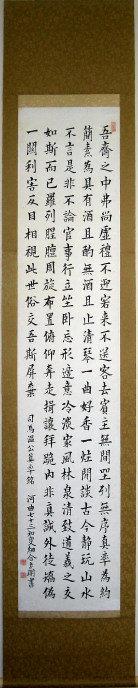 吾齋之中弗尚虛禮不迎客來不送客去賓主無間坐列無序真率為約
簡素為具有酒且酌無酒且止清琴一曲好香一炷閒談古今靜玩山水
不言是非不論官事行立坐臥忘形適意冷淡家風林泉清致道義之交
如斯而已羅列腥羶周旋布置俯仰奔走揖讓拜跪內非真誠外徒矯偽
一關利害反目相視此世俗交吾斯屏棄
司馬溫公真率銘 七十三 書